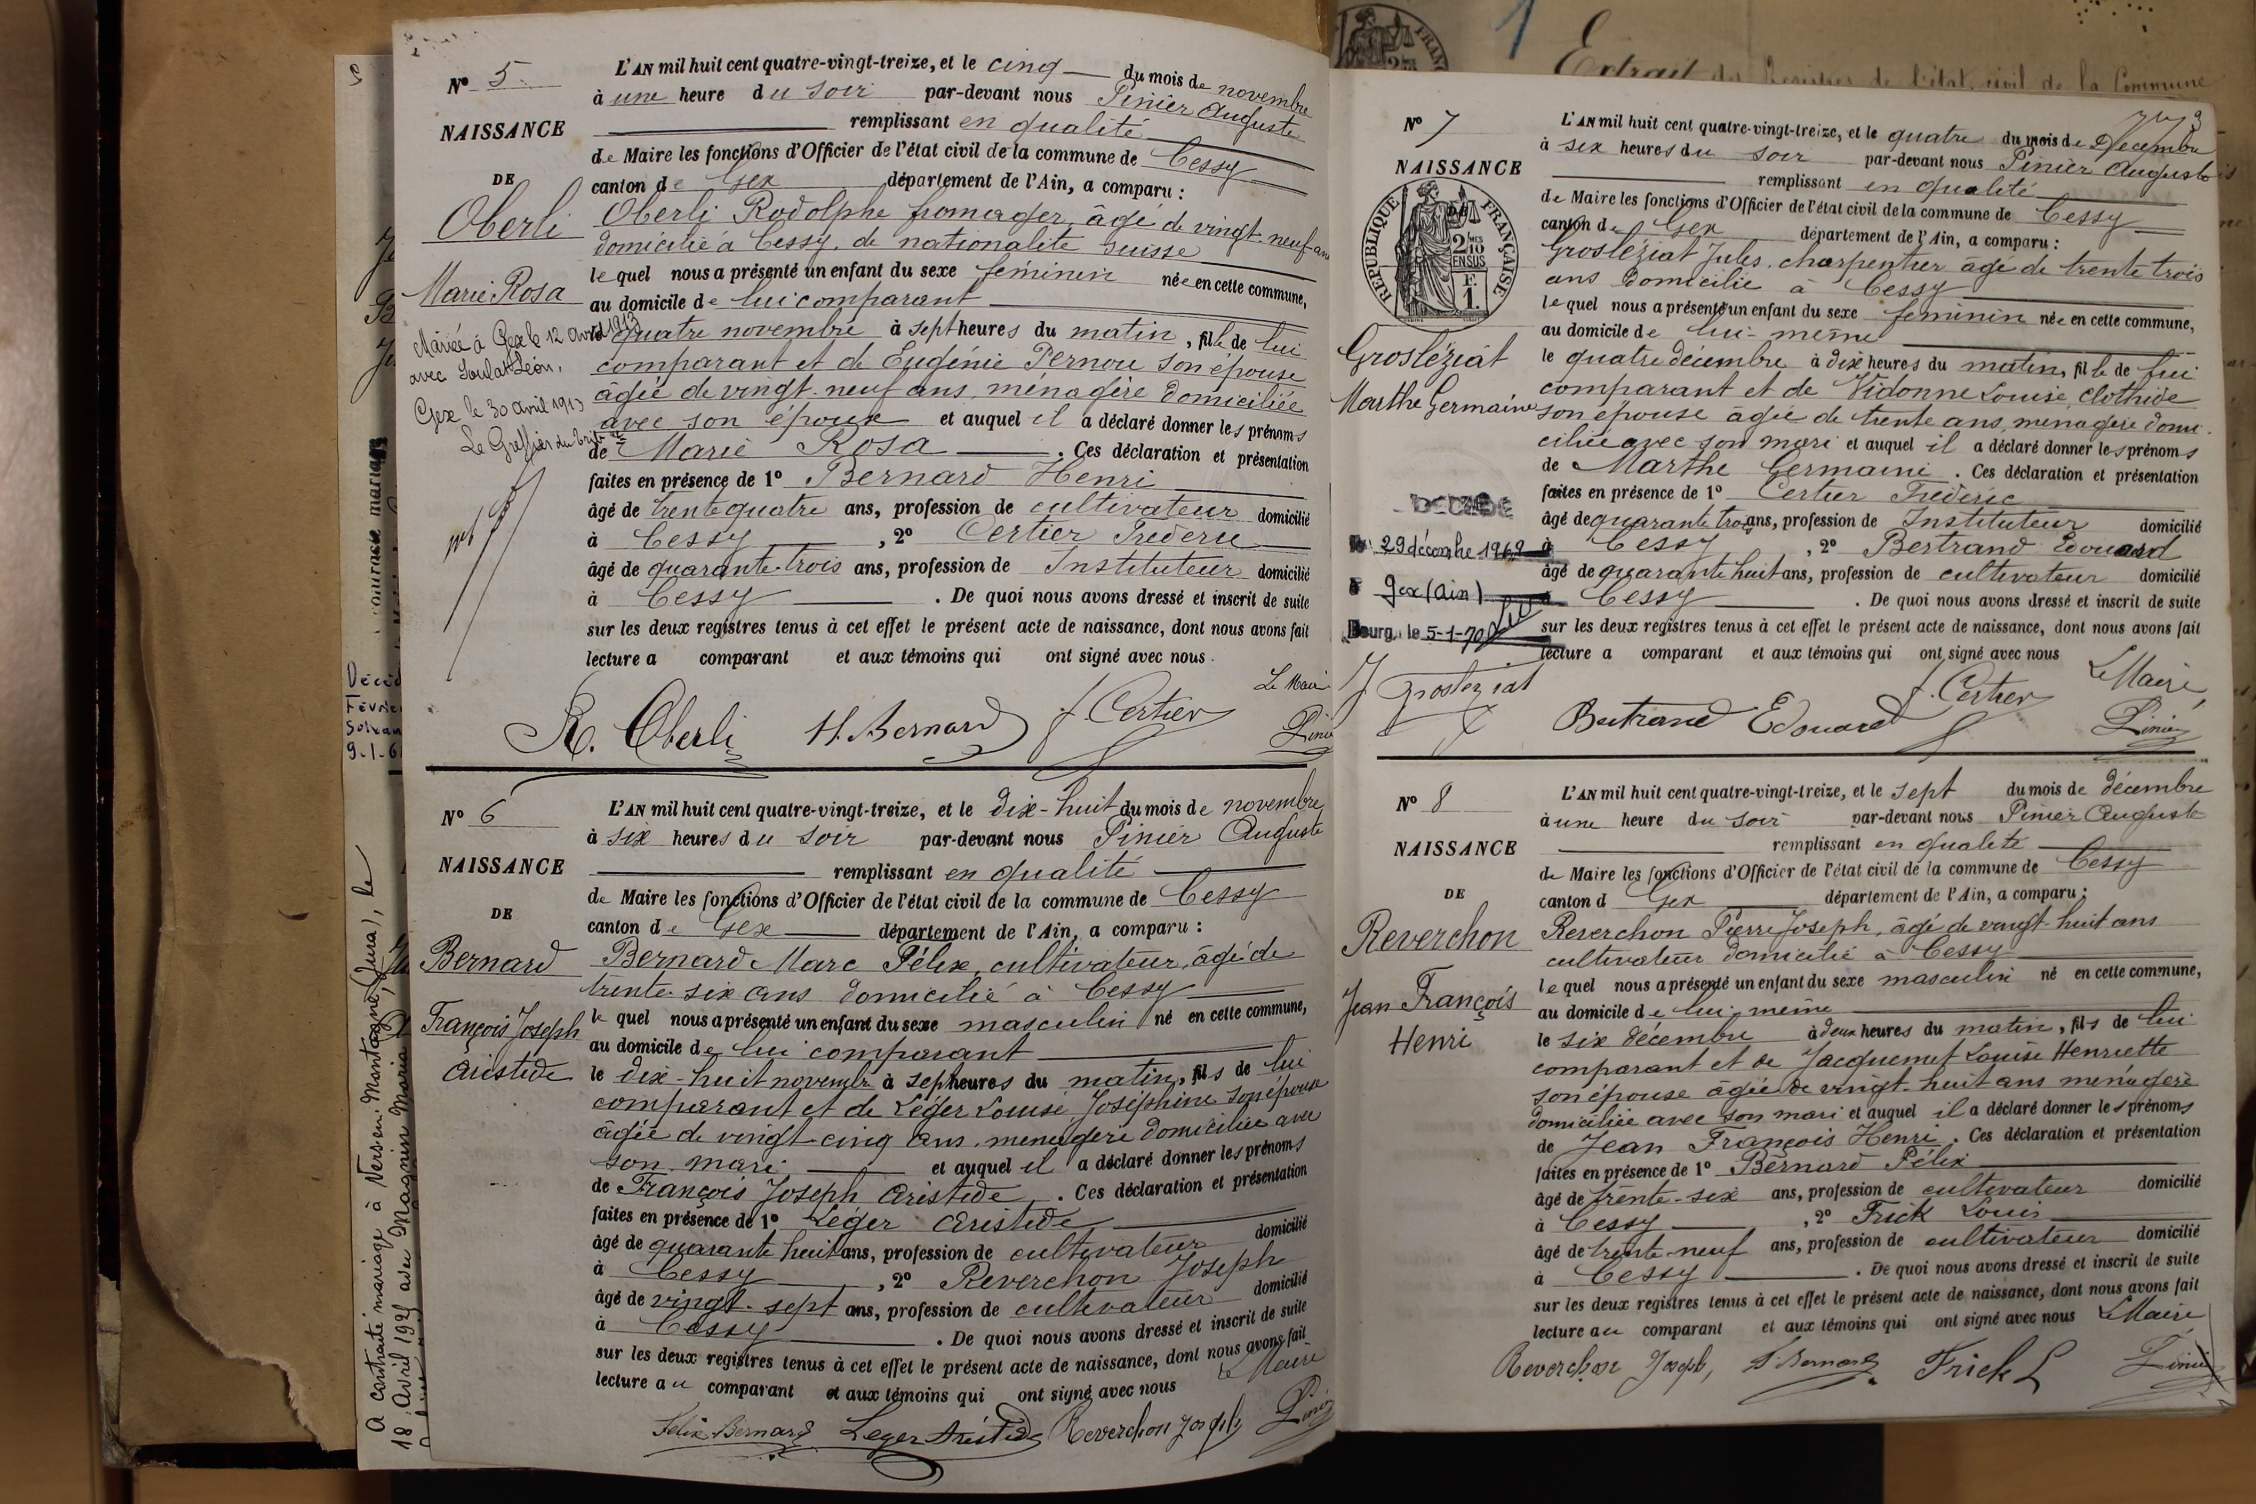 Nº 5
NAISSANCE
DE
Oberli
Marie Rosa
Mariée à Gex le 12 avril 1913
avec Léon,
Gex le 30 avril 1913
Le Greffier du
L'AN mil huit cent quatre-vingt-treize, et le cinq du mois de novembre
à une heure du soir par-devant nous Pinier Auguste
remplissant en qualité
de Maire les fonctions d'Officier de l'état civil de la commune de Cessy
canton de Gex département de l'Ain, a comparu :
Oberli Rodolphe fromager, âgé de vingt-neuf ans
domicilié à Cessy, de nationalité suisse
lequel nous a présenté un enfant du sexe féminin née en cette commune,
au domicile de lui comparant
le quatre novembre à sept heures du matin, fille de lui
comparant et de Eugénie Pernou son épouse
âgée de vingt-neuf ans, ménagère domiciliée
avec son époux et auquel il a déclaré donner les prénoms
de Marie Rosa . Ces déclaration et présentation
faites en présence de 1º Bernard Henri
âgé de trente quatre ans, profession de cultivateur domicilié
à Cessy , 2º Certier Frederic
âgé de quarante-trois ans, profession de Instituteur domicilié
à Cessy . De quoi nous avons dressé et inscrit de suite
sur les deux registres tenus à cet effet le présent acte de naissance, dont nous avons fait
lecture a comparant et aux témoins qui ont signé avec nous.
Le Maire
R. Oberli H. Bernard f. Certier Pinier
Nº 6
NAISSANCE
DE
Bernard
François Joseph
Aristide
L'AN mil huit cent quatre-vingt-treize, et le dix-huit du mois de novembre
à six heures du soir par-devant nous Pinier Auguste
remplissant en qualité
de Maire les fonctions d'Officier de l'état civil de la commune de Cessy
canton de Gex département de l'Ain, a comparu :
Bernard Marc Félix, cultivateur, âgé de
trente-six ans domicilié à Cessy
lequel nous a présenté un enfant du sexe masculin né en cette commune,
au domicile de lui comparant
le dix-huit novembre à sept heures du matin, fils de lui
comparant et de Léger Louise Joséphine son épouse
âgée de vingt-cinq ans, ménagère domiciliée avec
son mari et auquel il a déclaré donner les prénoms
de François Joseph Aristide . Ces déclaration et présentation
faites en présence de 1º Léger Aristide
âgé de quarante huit ans, profession de cultivateur domicilié
à Cessy , 2º Reverchon Joseph
âgé de vingt-sept ans, profession de cultivateur domicilié
à Cessy . De quoi nous avons dressé et inscrit de suite
sur les deux registres tenus à cet effet le présent acte de naissance, dont nous avons fait
lecture au comparant et aux témoins qui ont signé avec nous
Le Maire
Félix Bernard Leger Aristide Reverchon Joseph Pinier
A contracté mariage à Vers-en-Montagne (Jura), le
18 Avril 1925 avec Magnin Maria
Février
9-1-6
Extrait des Registres de l'état civil de la Commune
Nº 7
NAISSANCE
DE
RÉPUBLIQUE FRANÇAISE
2 10 EN SUS
F. 1.
Grosléziat
Marthe Germaine
DÉCÉDÉE
le 29 décembre 1969
à Gex (Ain)
Bourg, le 5-1-70
L'AN mil huit cent quatre-vingt-treize, et le quatre du mois de Décembre
à six heures du soir par-devant nous Pinier Auguste
remplissant en qualité
de Maire les fonctions d'Officier de l'état civil de la commune de Cessy
canton de Gex département de l'Ain, a comparu :
Grosléziat Jules, charpentier âgé de trente trois
ans domicilié à Cessy
lequel nous a présenté un enfant du sexe féminin née en cette commune,
au domicile de lui-même
le quatre décembre à dix heures du matin, fille de lui
comparant et de Vidonne Louise Clothide
son épouse âgée de trente ans, ménagère domi-
ciliée avec son mari et auquel il a déclaré donner les prénoms
de Marthe Germaine . Ces déclaration et présentation
faites en présence de 1º Certier Fréderic
âgé de quarante trois ans, profession de Instituteur domicilié
à Cessy , 2º Bertrand Edouard
âgé de quarante huit ans, profession de cultivateur domicilié
à Cessy . De quoi nous avons dressé et inscrit de suite
sur les deux registres tenus à cet effet le présent acte de naissance, dont nous avons fait
lecture a comparant et aux témoins qui ont signé avec nous
Le Maire
J Grosleziat Bertrand Edouard f. Certier Pinier
Nº 8
NAISSANCE
DE
Reverchon
Jean François
Henri
L'AN mil huit cent quatre-vingt-treize, et le sept du mois de décembre
à une heure du soir par-devant nous Pinier Auguste
remplissant en qualité
de Maire les fonctions d'Officier de l'état civil de la commune de Cessy
canton d Gex département de l'Ain, a comparu :
Reverchon Pierre Joseph, âgé de vingt-huit ans
cultivateur domicilié à Cessy
lequel nous a présenté un enfant du sexe masculin né en cette commune,
au domicile de lui-même
le six décembre à deux heures du matin, fils de lui
comparant et de Jacquemet Louise Henriette
son épouse âgée de vingt-huit ans ménagère
domiciliée avec son mari et auquel il a déclaré donner les prénoms
de Jean François Henri . Ces déclaration et présentation
faites en présence de 1º Bernard Félix
âgé de trente-six ans, profession de cultivateur domicilié
à Cessy , 2º Frick Louis
âgé de trente-neuf ans, profession de cultivateur domicilié
à Cessy . De quoi nous avons dressé et inscrit de suite
sur les deux registres tenus à cet effet le présent acte de naissance, dont nous avons fait
lecture au comparant et aux témoins qui ont signé avec nous Le Maire
Reverchon Joseph, F. Bernard Frick L Pinier